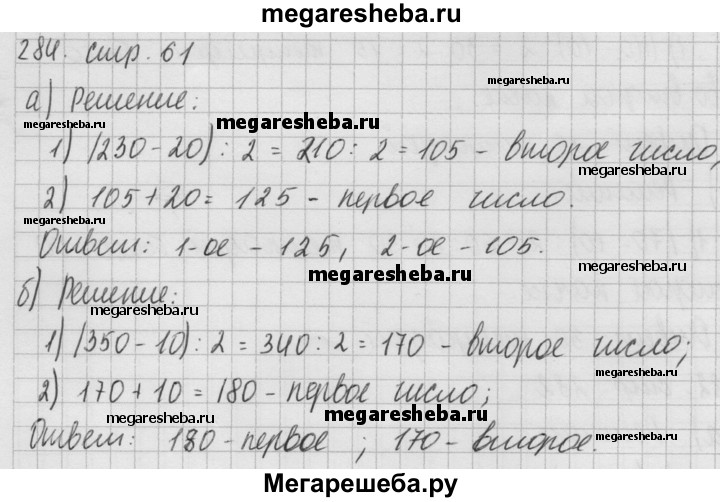 megaresheba.ru
284. стр. 61
megaresheba.ru
а) Решение:
megaresheba.ru megaresheba.ru
1) (230-20) : 2 = 210 : 2 = 105 - второе число,
megaresheba.ru
2) 105+20 = 125 - первое число.
megaresheba.ru
Ответ: 1-ое - 125, 2-ое - 105.
megaresheba.ru
б) Решение:
megaresheba.ru
1) (350-10) : 2 = 340 : 2 = 170 - второе число;
megaresheba.ru
2) 170+10 = 180 - первое число;
megaresheba.ru megaresheba.ru
Ответ: 180 - первое ; 170 - второе.
megaresheba.ru
Мегарешеба.ру